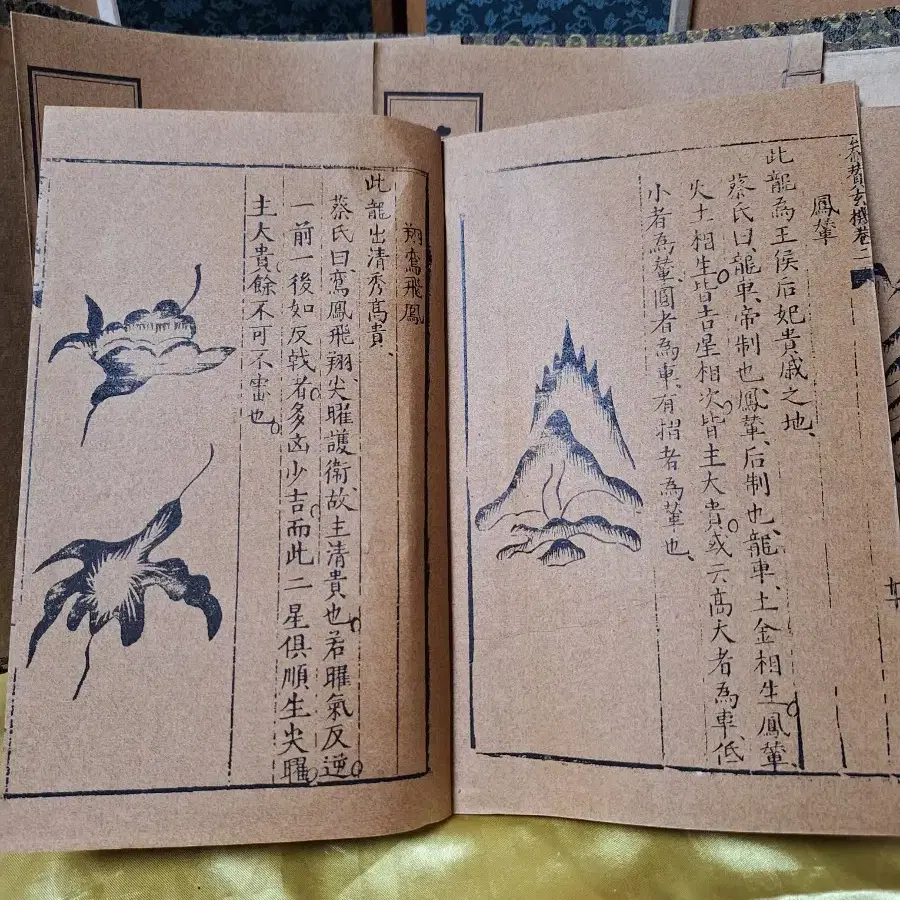 參贊玄機卷二
鳳輦
此龍為王侯后妃貴戚之地、
蔡氏曰、龍車、帝制也、鳳輦、后制也、龍車、土金相生、鳳輦、
火土相生、皆吉星相次、皆主大貴、或云高大者為車、低
小者為輦、圓者為車、有摺者為輦也、
翔鸞飛鳳
此龍出清秀高貴、
蔡氏曰、鸞鳳飛翔、尖曜護衛、故主清貴也、若曜氣反逆
一前一後如反戟者、多凶少吉、而此二星俱順生尖曜、
主大貴、餘不可不審也、